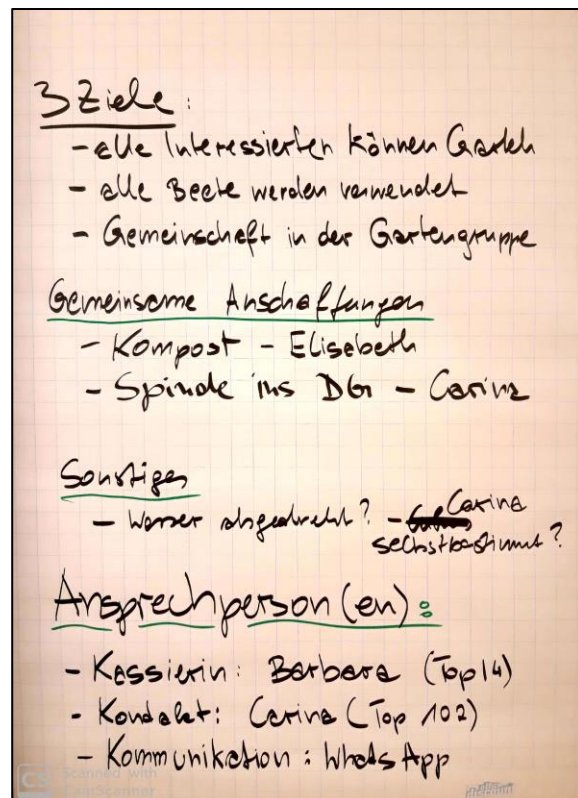 3 Ziele:
- alle Interessierten können Garteln
- alle Beete werden verwendet
- Gemeinschaft in der Gartengruppe
Gemeinsame Anschaffungen
- Kompost - Elisabeth
- Spinde ins DG - Carina
Sonstiges
- Wasser abgedreht? - Carina
selbstbestimmt?
Ansprechperson(en):
- Kassierin: Barbara (Top 14)
- Kondakt: Carina (Top 102)
- Kommunikation: WhatsApp
CS Scanned with
CamScanner